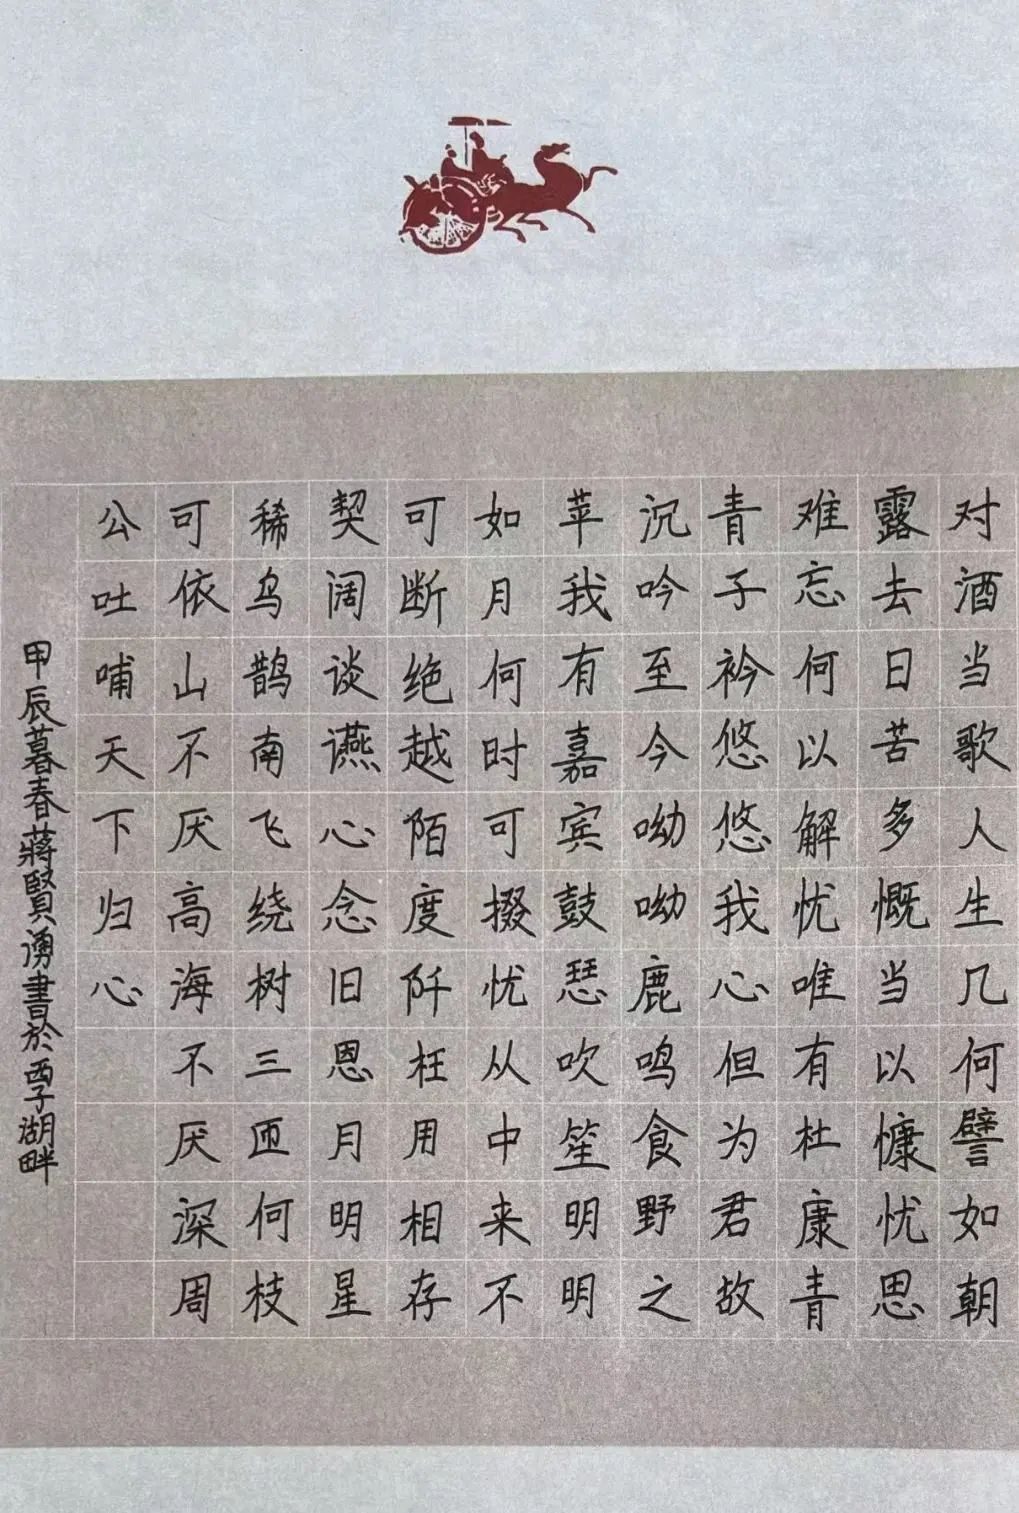 对酒当歌人生几何譬如朝
露去日苦多慨当以慷忧思
难忘何以解忧唯有杜康青
青子衿悠悠我心但为君故
沉吟至今呦呦鹿鸣食野之
苹我有嘉宾鼓瑟吹笙明明
如月何时可掇忧从中来不
可断绝越陌度阡枉用相存
契阔谈讌心念旧恩月明星
稀乌鹊南飞绕树三匝何枝
可依山不厌高海不厌深周
公吐哺天下归心
甲辰暮春蔣賢湧書於西子湖畔